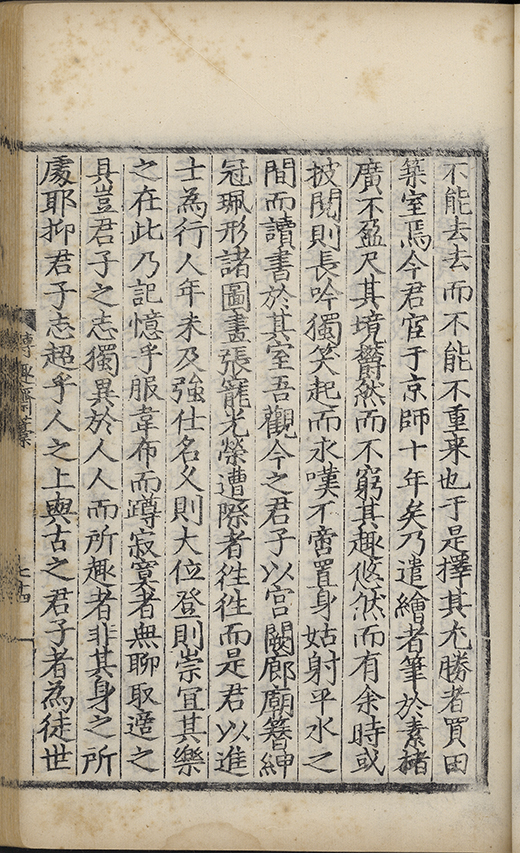 不能去去而不能不重来也于是擇其尤勝者買田
築室焉今君宦于京師十年矣乃遣繪者筆於素楮
廣不盈尺其境欝然而不窮其趣悠然而有余時或
披閱則長吟獨笑起而永嘆不啻置身姑射平水之
間而讀書於其室吾觀今之君子以宮闕廊廟簪紳
冠珮形諸圖畫張寵光榮遭際者徃徃而是君以進
士為行人年未及強仕名乂則大位登則崇冝其樂
之在此乃記憶乎服韋布而蹲寂寞者無聊取適之
具豈君子之志獨異於人人而所趣者非其身之所
處耶抑君子志超乎人之上與古之君子者為徒世
博趣齋藁
七四